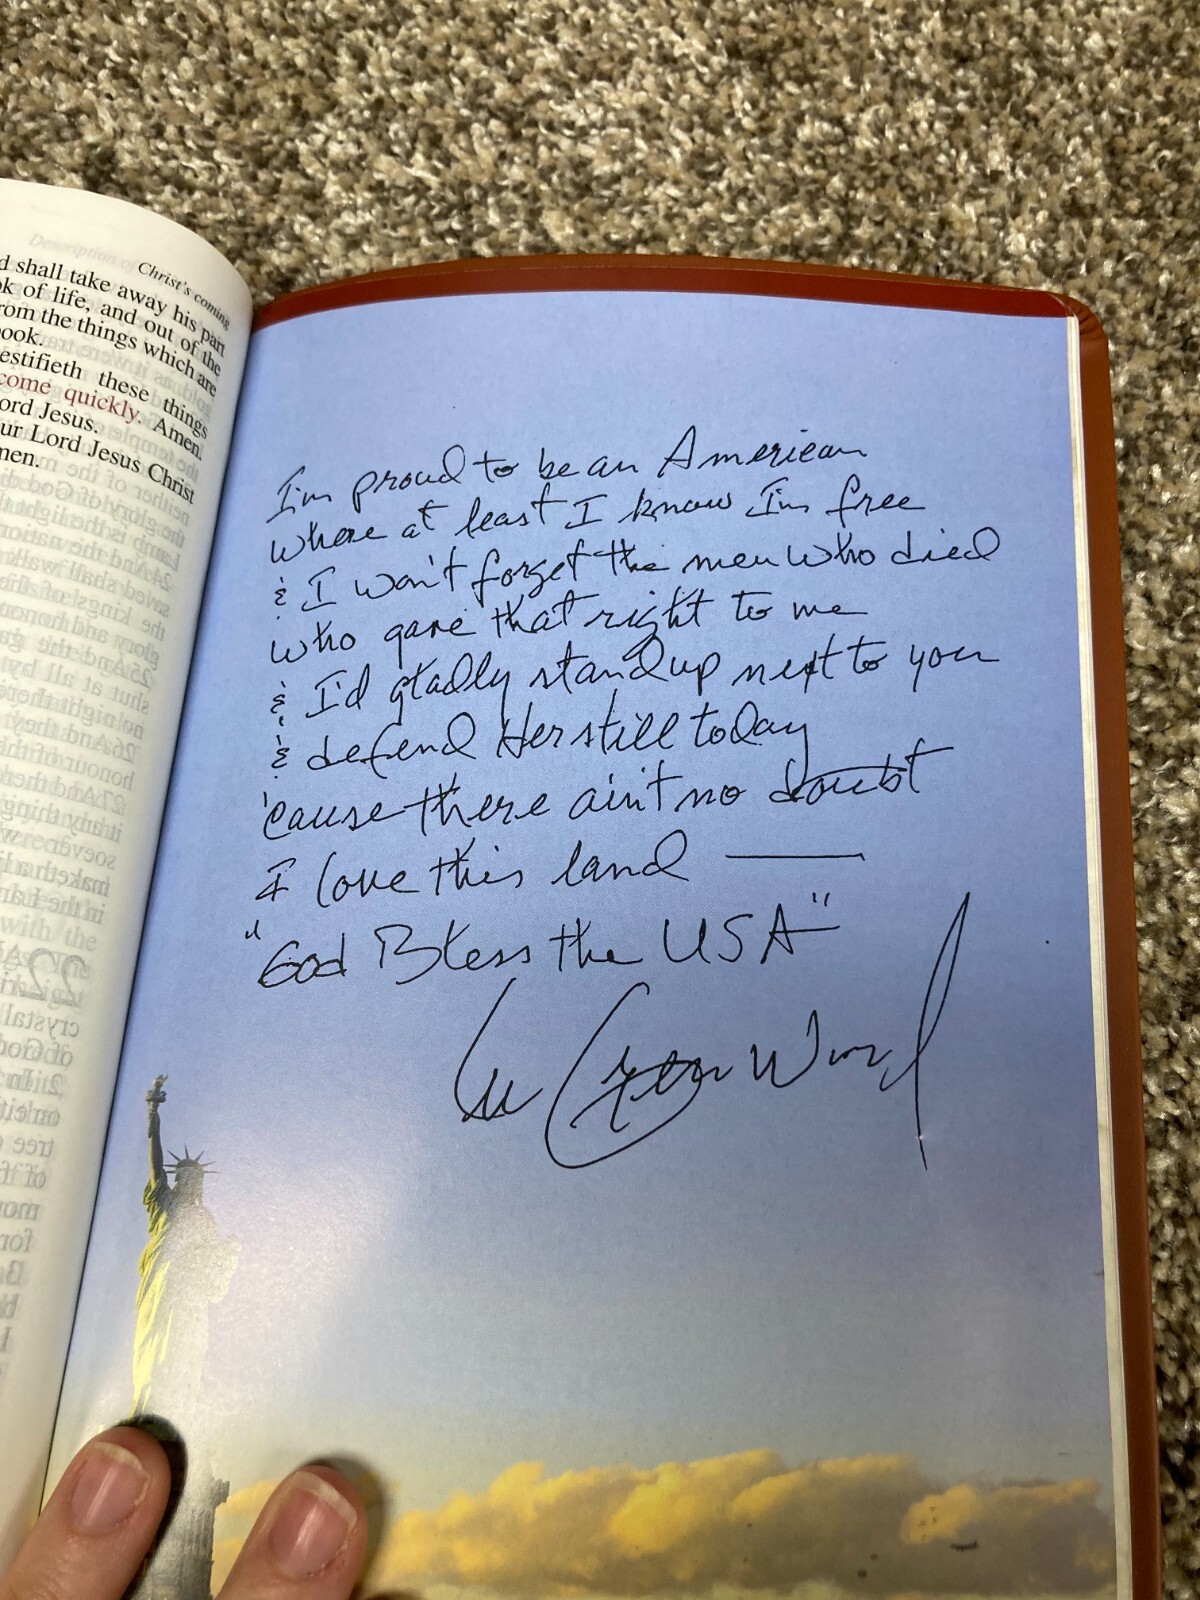 Christ's coming
d shall take away his part
ok of life, and out of the
rom the things which are
book.
estifieth these things
come quickly. Amen.
ord Jesus.
ur Lord Jesus Christ
men.
I'm proud to be an American
where at least I know I'm free
& I won't forget the men who died
who gave that right to me
& I'd gladly stand up next to you
& defend Her still today
'cause there ain't no doubt
I love this land —
"God Bless the USA"
Lee Greenwood